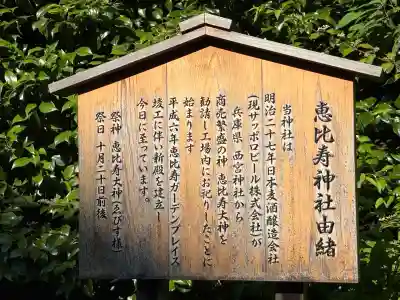 恵比寿神社由緒
当神社は
明治二十七年日本麦酒醸造会社
(現サッポロビール株式会社)が
兵庫県 西宮神社から
商売繁盛の神 恵比寿大神を
勧請し工場内にお祀りしたことに
始まります
平成六年恵比寿ガーデンプレイス
竣工に伴い新殿を神立し
今日に至っています。
祭神 恵比寿大神(ゑびす様)
祭日 十月二十日前後